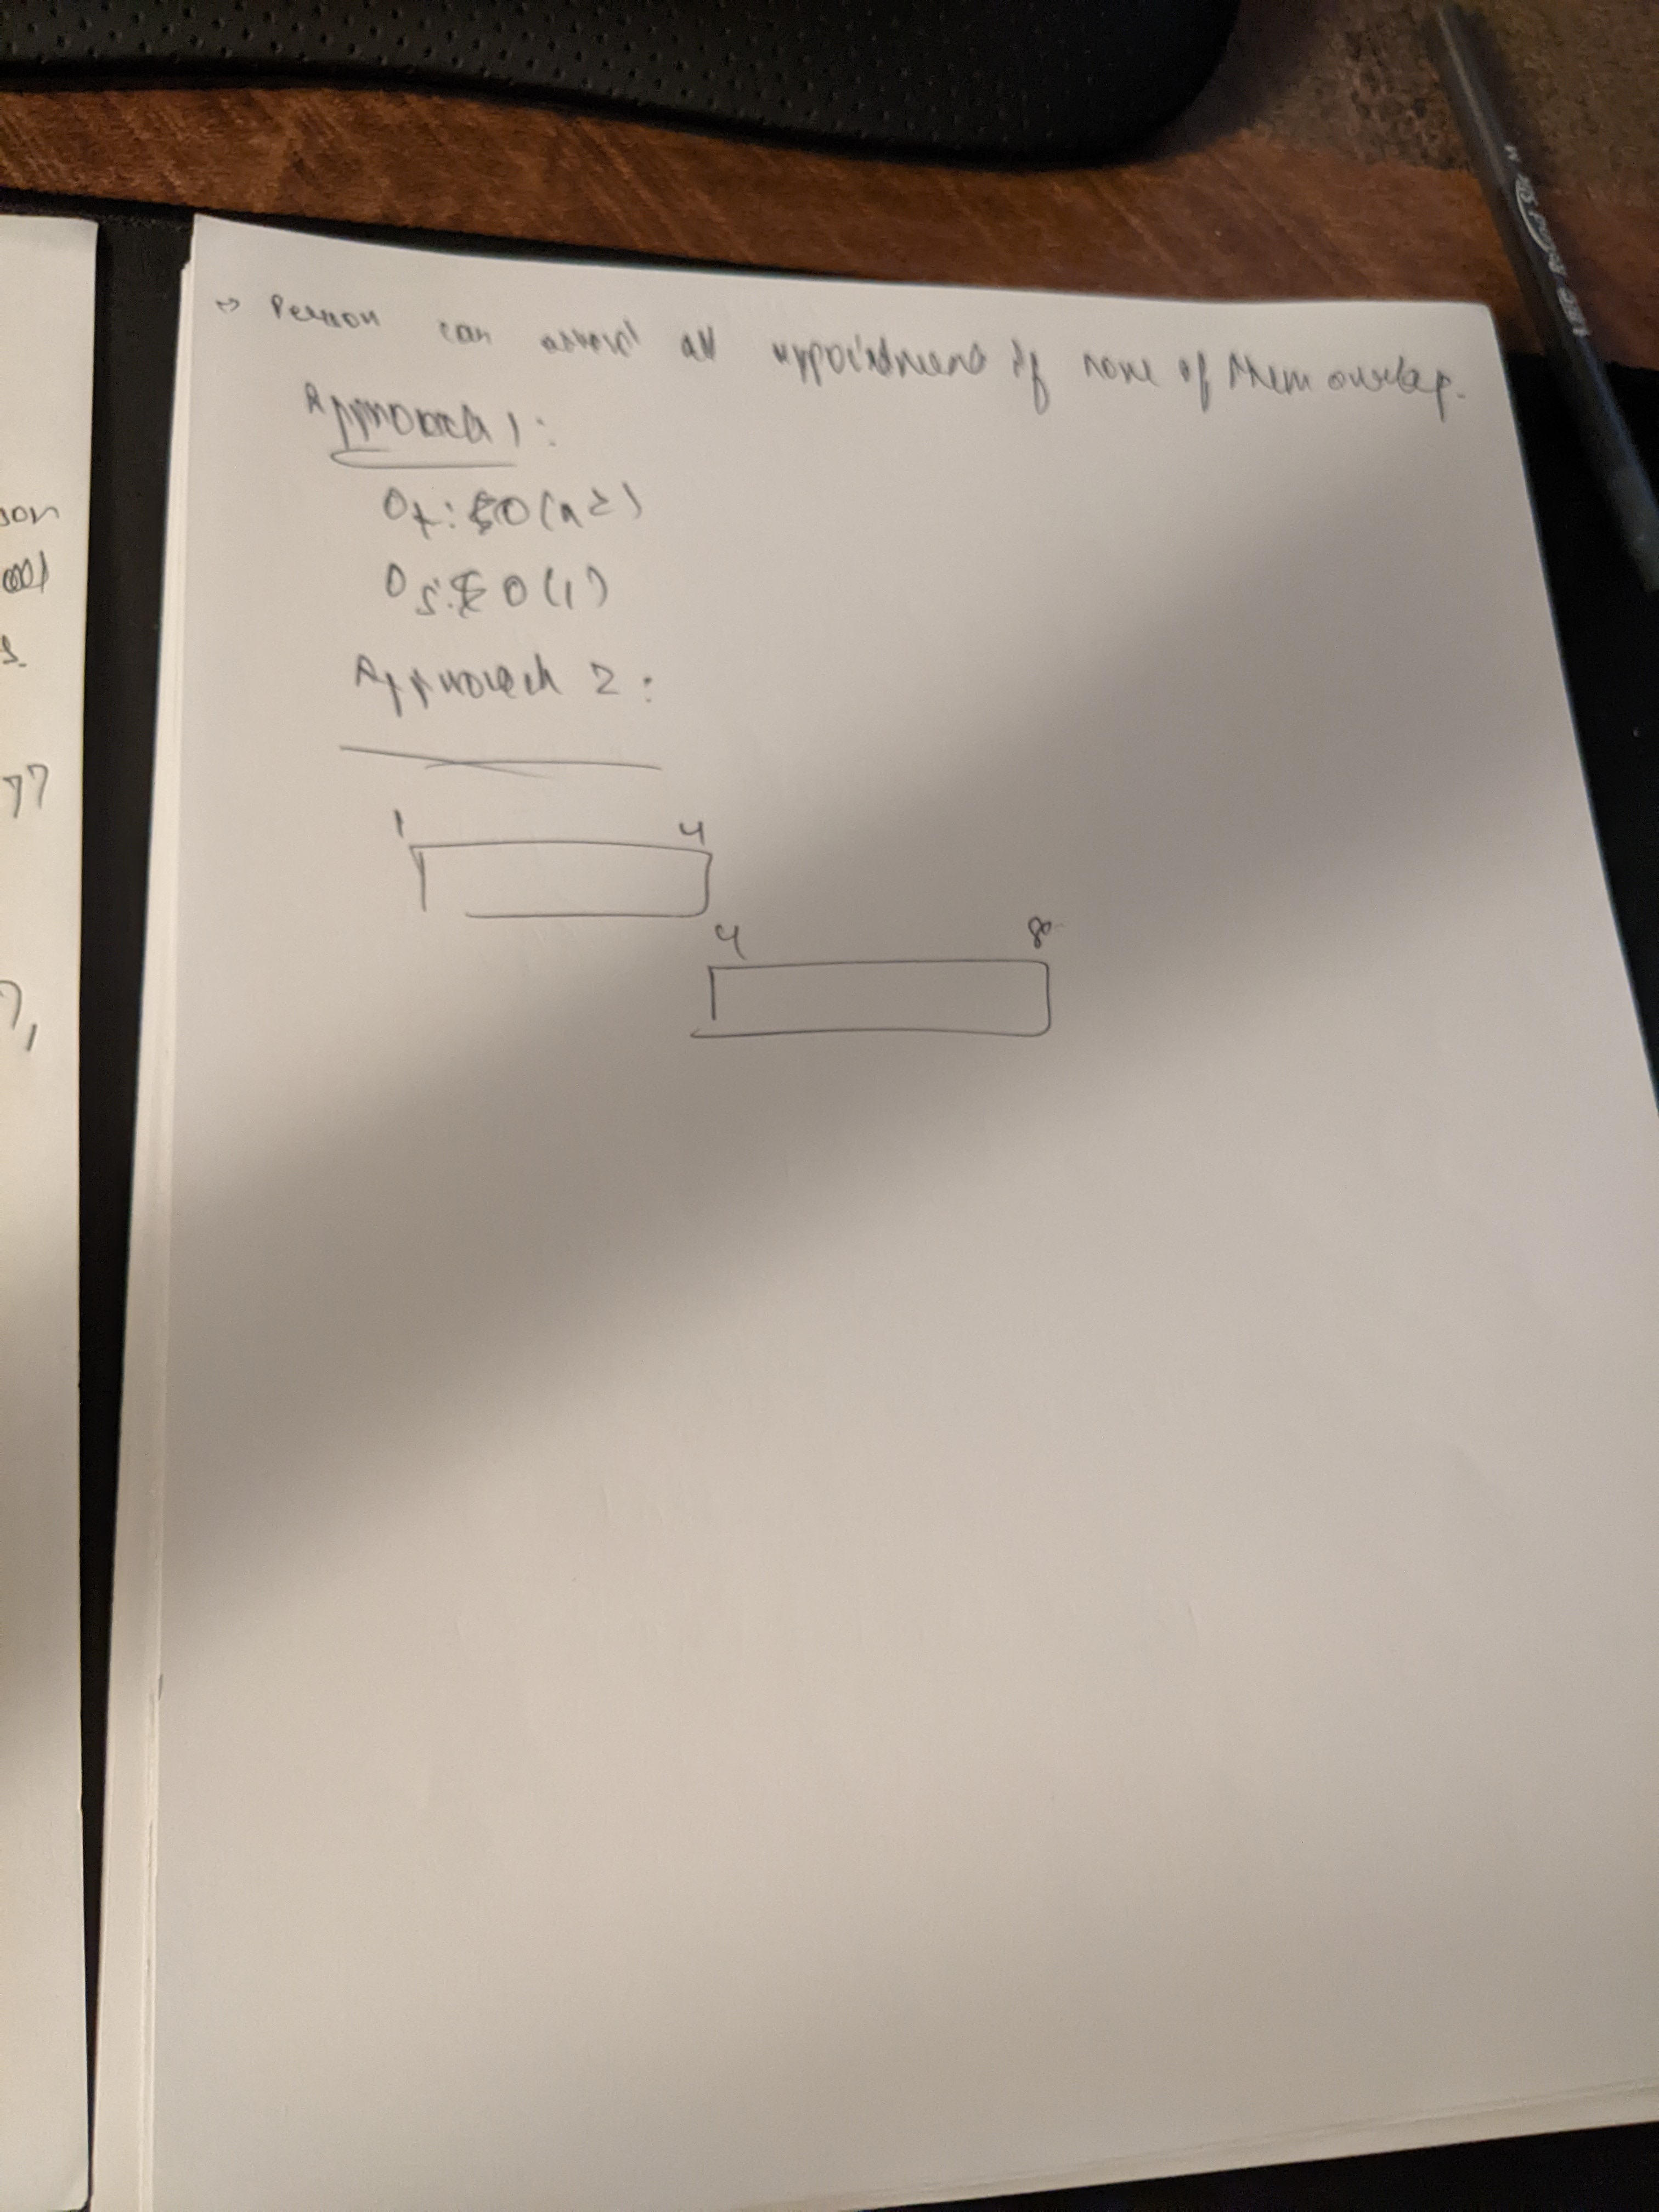 → Person can attend all appointments if none of them overlap.
Approach 1:
Ot: O(n2)
Os: O(1)
Approach 2:
1 4
4 8
son
s.
77
7,